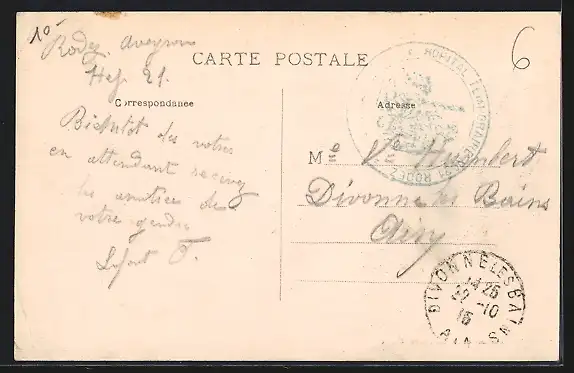 10
Rodez Aveyron
CARTE POSTALE
6
Correspondance
Adresse
HOPITAL TEMPORAIRE
RODEZ
Bientot des votres
en attendant recevez
les amitiés de
votre gendre
Lafont F.
Me Ve Humbert
Divonne les Bains
Ain
DIVONNE LES BAINS
14 25
-10
15
AIN